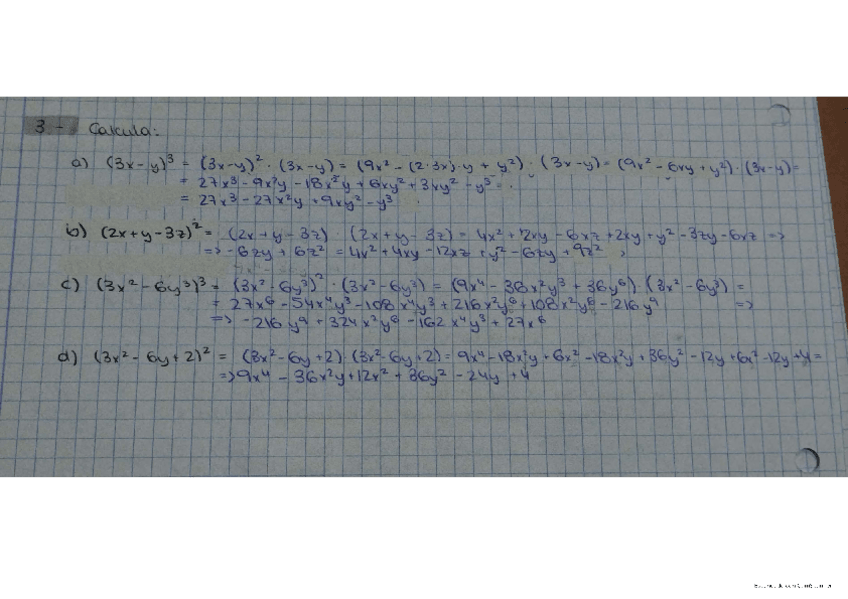 3 - Calcula:
a) (3x-y)³ = (3x-y)² · (3x-y) = (9x² - (2·3x)·y + y²) · (3x-y) = (9x² - 6xy + y²) · (3x-y) =
= 27x³ - 9x²y - 18x²y + 6xy² + 3xy² - y³
= 27x³ - 27x²y + 9xy² - y³
b) (2x+y-3z)² = (2x+y-3z) · (2x+y-3z) = 4x² + 2xy - 6xz + 2xy + y² - 3zy - 6xz =>
=> -6zy + 6z² = 4x² + 4xy - 12xz + y² - 6zy + 9z²
c) (3x² - 6y³)³ = (3x² - 6y³)² · (3x² - 6y³) = (9x⁴ - 36x²y³ + 36y⁶) · (3x² - 6y³) =
= 27x⁶ - 54x⁴y³ - 108x⁴y³ + 216x²y⁶ + 108x²y⁶ - 216y⁹ =>
=> -216y⁹ + 324x²y⁶ - 162x⁴y³ + 27x⁶
d) (3x² - 6y + 2)² = (3x² - 6y + 2) · (3x² - 6y + 2) = 9x⁴ - 18x²y + 6x² - 18x²y + 36y² - 12y + 6x² - 12y + 4 =
=> 9x⁴ - 36x²y + 12x² + 36y² - 24y + 4